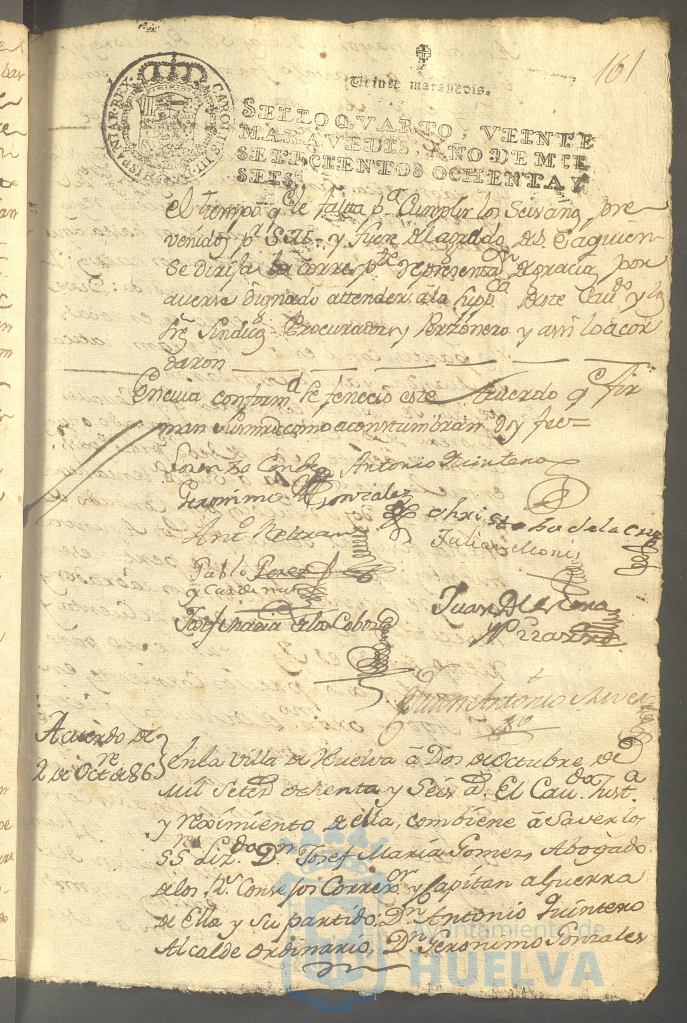 161
Veinte maravedis.
CAROLUS III D.G. HISPANIAR. REX
SELLO QVARTO, VEINTE
MARAVEDIS, AÑO DE MIL
SETECIENTOS OCHENTA Y
SEIS.
el tiempo q.e le falta p.a Cumplir los Seis años pre
venidos p.r y fuere del agrado de S. E. a quien
se dirija la corresp.te representa.on de gracia por
averse dignado attender a la supp.ca de este Cav.do y los
Sindicos Procurador y Perzonero y assi lo acor
daron
En cuia conform.d se fenecio este Acuerdo q.e fir
man sus mrds como acostumbran doy fee=
Lorenzo Conde Antonio Quintero
Geronimo Gonzalez
Christobal de la Cruz
Ant.o Beltran
Julian Moni
Pablo Perez
y Cardenas
Juan de
Josef Maria de los Cobos
Juan Antonio
Acuerdo de
2 de Oct.re de 86
En la Villa de Huelva á Dos de Octubre de
Mil Setez.s ochenta y Seis a.s El Cav.do Just.a
y reximiento de ella, combiene á Saver los
SS. Liz.do D.n Josef Maria Gomez, Abogado
de los R.s Consejos Correx.or y Capitan a Guerra
de Ella y su partido, D.n Antonio Quintero
Alcalde ordinario, D.n Geronimo Gonzales
Ayuntamiento de
HUELVA